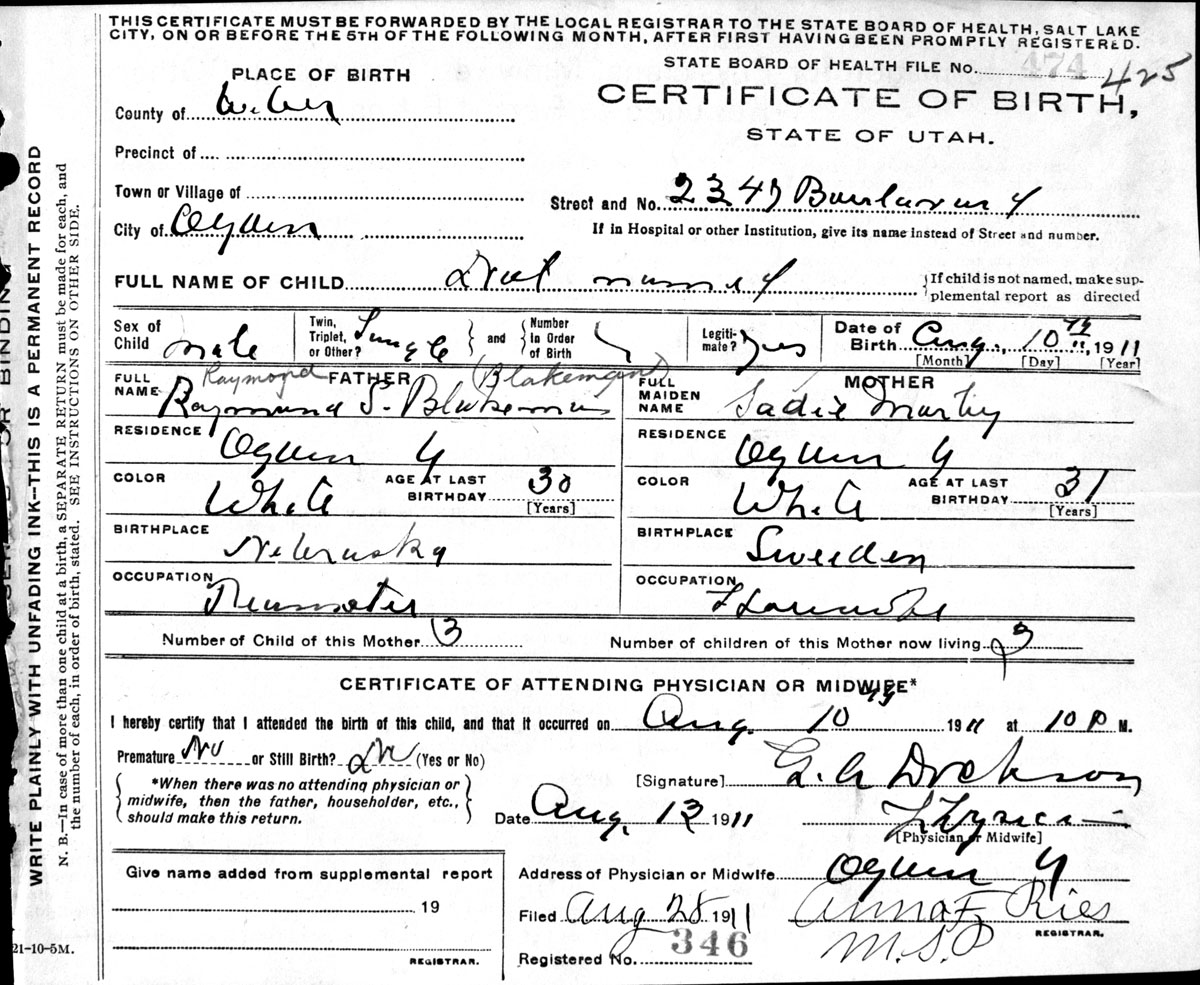 THIS CERTIFICATE MUST BE FORWARDED BY THE LOCAL REGISTRAR TO THE STATE BOARD OF HEALTH, SALT LAKE
CITY, ON OR BEFORE THE 5TH OF THE FOLLOWING MONTH, AFTER FIRST HAVING BEEN PROMPTLY REGISTERED.
STATE BOARD OF HEALTH FILE No. 474 425
PLACE OF BIRTH
CERTIFICATE OF BIRTH,
STATE OF UTAH.
County of Weber
Precinct of
Town or Village of
Street and No. 2347
City of Ogden
If in Hospital or other Institution, give its name instead of Street and number.
FULL NAME OF CHILD
If child is not named, make sup-
plemental report as directed
Sex of Child male
Twin, Triplet, or Other? Single and Number In Order of Birth
Legiti- mate? yes
Date of Birth Aug. 10th 1911
[Month] [Day] [Year]
FATHER
Raymond (Blakeman)
FULL NAME Raymund S. Blakeman
MOTHER
FULL MAIDEN NAME Sadie
RESIDENCE Ogden
RESIDENCE Ogden
COLOR White AGE AT LAST BIRTHDAY 30 [Years]
COLOR White AGE AT LAST BIRTHDAY 31 [Years]
BIRTHPLACE Nebraska
BIRTHPLACE Sweeden
OCCUPATION
OCCUPATION
Number of Child of this Mother 3
Number of children of this Mother now living 3
CERTIFICATE OF ATTENDING PHYSICIAN OR MIDWIFE*
I hereby certify that I attended the birth of this child, and that it occurred on Aug. 10th 1911 at 10 P M.
Premature No or Still Birth? (Yes or No)
*When there was no attending physician or
midwife, then the father, householder, etc.,
should make this return.
[Signature] Dickson
Date Aug. 1911
[Physician or Midwife]
Give name added from supplemental report
19
REGISTRAR.
Address of Physician or Midwife Ogden
Filed Aug 28 1911 Anna F. Ries
REGISTRAR.
Registered No. 346
WRITE PLAINLY WITH UNFADING INK—THIS IS A PERMANENT RECORD
N. B.—In case of more than one child at a birth, a SEPARATE RETURN must be made for each, and
the number of each, in order of birth, stated. SEE INSTRUCTIONS ON OTHER SIDE.
21-10-5M.